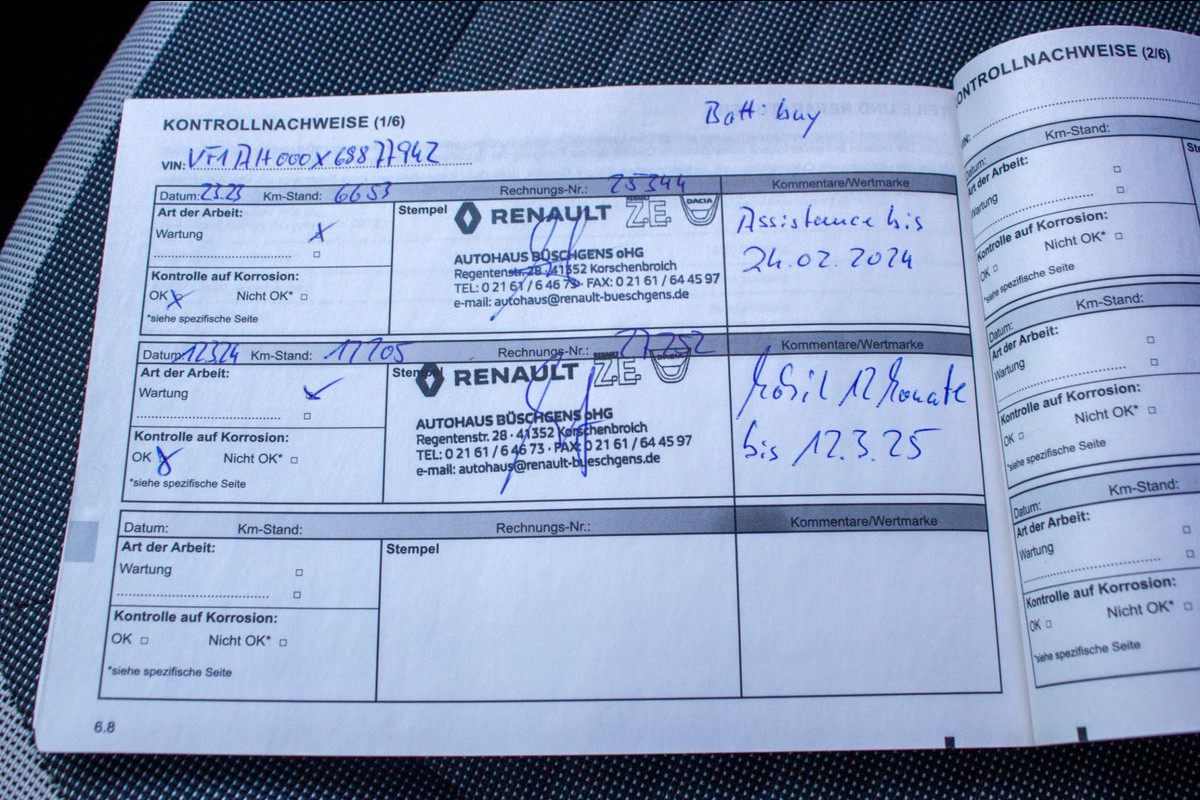 KONTROLLNACHWEISE (1/6)
Batt. buy
VIN: VF17AH000X68877942
Datum: 2323 Km-Stand: 6653 Rechnungs-Nr.: 25344 Kommentare/Wertmarke
Art der Arbeit:
Wartung
Kontrolle auf Korrosion:
OK Nicht OK*
*siehe spezifische Seite
Stempel
RENAULT Z.E. DACIA
AUTOHAUS BÜSCHGENS oHG
Regentenstr. 28 · 41352 Korschenbroich
TEL: 0 21 61 / 6 46 73 · FAX: 0 21 61 / 64 45 97
e-mail: autohaus@renault-bueschgens.de
Assistance bis
24.02.2024
Datum: 12324 Km-Stand: 17705 Rechnungs-Nr.: 27252 Kommentare/Wertmarke
Art der Arbeit:
Wartung
Kontrolle auf Korrosion:
OK Nicht OK*
*siehe spezifische Seite
Stempel
RENAULT Z.E. DACIA
AUTOHAUS BÜSCHGENS oHG
Regentenstr. 28 · 41352 Korschenbroich
TEL: 0 21 61 / 6 46 73 · FAX: 0 21 61 / 64 45 97
e-mail: autohaus@renault-bueschgens.de
Mobil 12 Monate
bis 12.3.25
Datum: Km-Stand: Rechnungs-Nr.: Kommentare/Wertmarke
Art der Arbeit:
Wartung
Kontrolle auf Korrosion:
OK Nicht OK*
*siehe spezifische Seite
Stempel
6.8
KONTROLLNACHWEISE (2/6)
VIN:
Datum: Km-Stand:
Art der Arbeit:
Wartung
Kontrolle auf Korrosion:
OK Nicht OK*
*siehe spezifische Seite
Datum: Km-Stand:
Art der Arbeit:
Wartung
Kontrolle auf Korrosion:
OK Nicht OK*
*siehe spezifische Seite
Datum: Km-Stand:
Art der Arbeit:
Wartung
Kontrolle auf Korrosion:
OK Nicht OK*
*siehe spezifische Seite